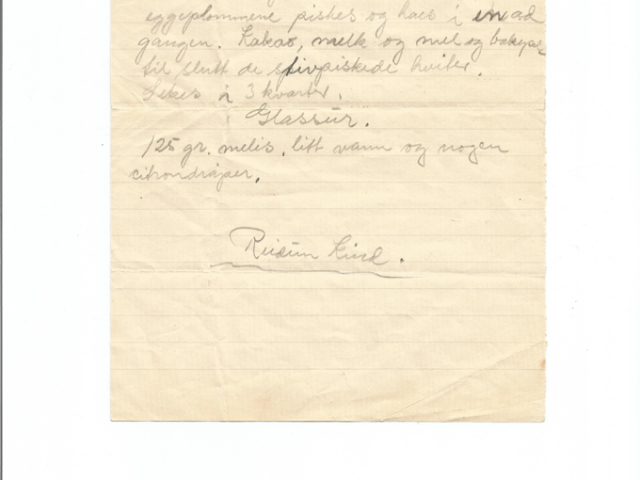 eggeplommene piskes og haes i en ad
gangen. Kakao, melk og mel og bakepu-
til slutt de stivpiskede hviter.
Stekes i 3 kvarter.
Glassur.
125 gr. melis, litt vann og nogen
citrondråper.
Reidun